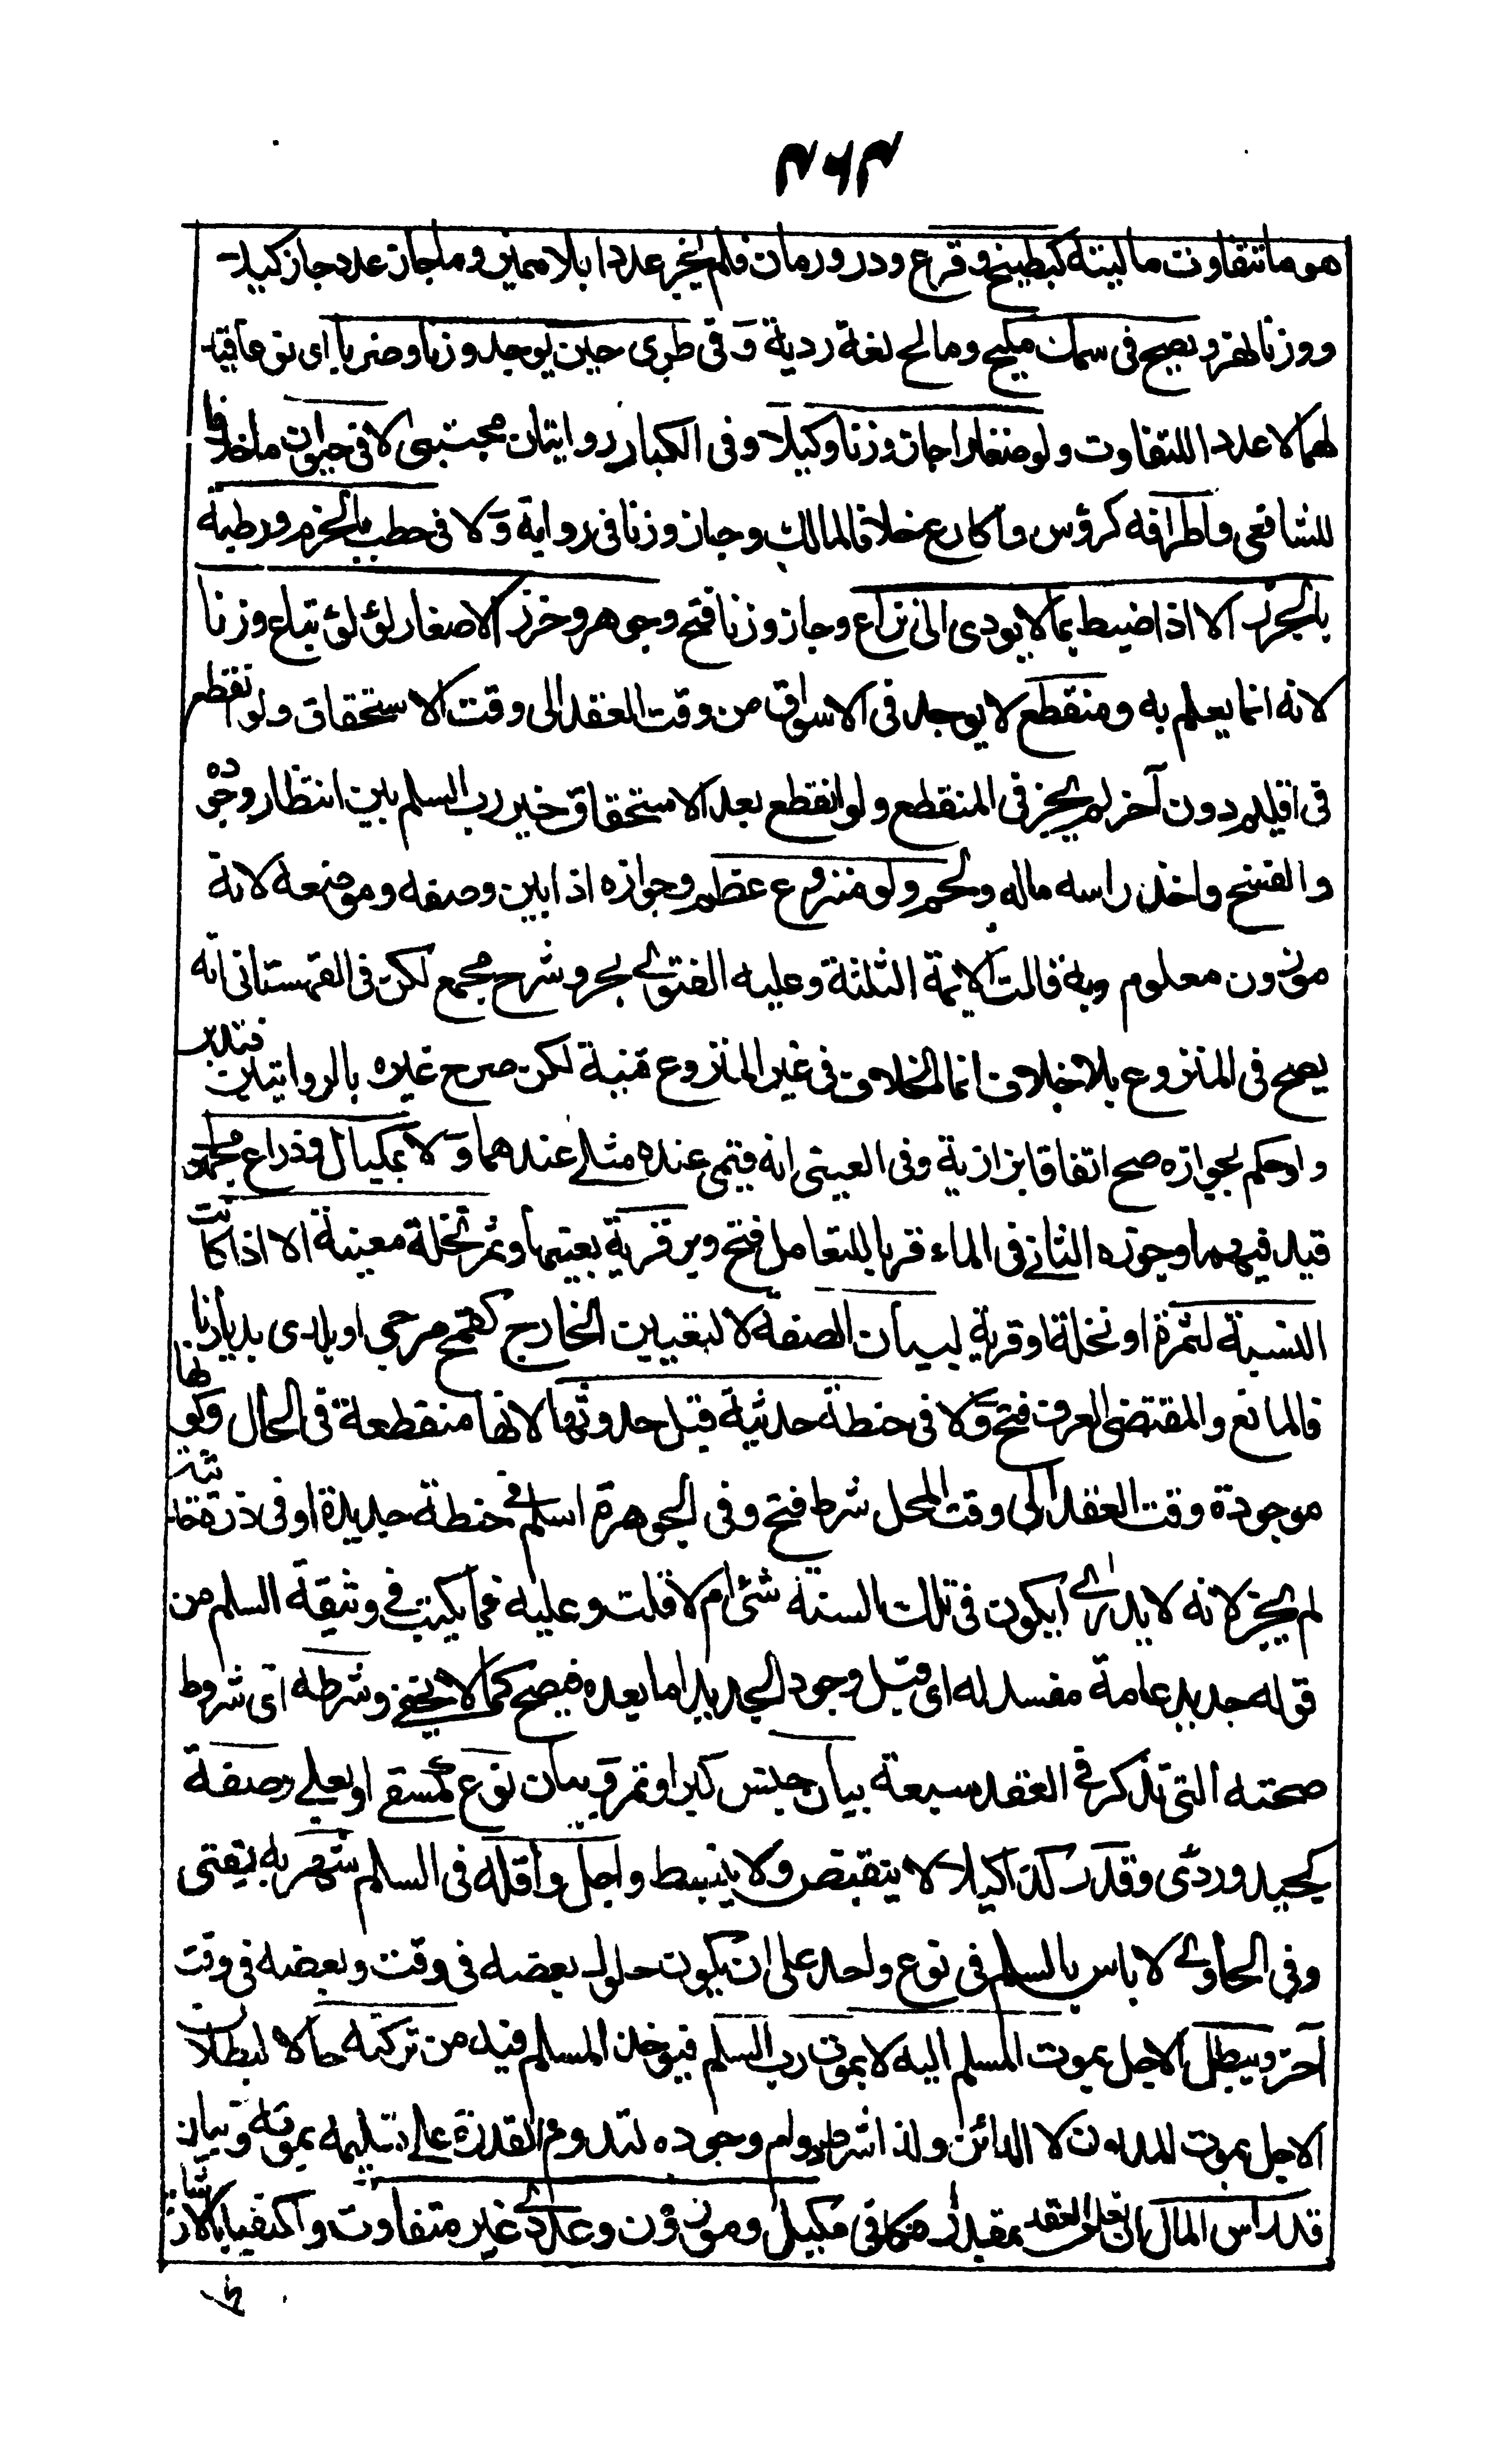 ٣٦٣
هو ما تتفاوت ماليته كبطيخ وقرع ودر ورمان فلم يجز عددا بلا مميز وما جاز عدد جاز كيلا
ووزنا نهر ويصح في سمك مليح ومالح لغة ردية وفي طري حين يوجد وزنا وضربا اى نوعا قيد
لهما لا عددا للتفاوت ولو صغارا جاز وزنا وكيلا وفي الكبار روايتان مجتبى لا في حيوان ما خلافا
للشافعي واطرافه كرؤس واكارع خلافا لمالك وجاز وزنا في رواية ولا في حطب بالحزم ورطبة
بالجرز الا اذا ضبط بما لا يودى الى نزاع وجاز وزنا فتح وجوهر وخرز الا صغار لؤلؤ تباع وزنا
لانه انما يعلم به ومنقطع لا يوجد في الاسواق من وقت العقد الى وقت الاستحقاق ولو انقطع
في اقليم دون آخر لم يجز في المنقطع ولو انقطع بعد الاستحقاق خير رب السلم بين انتظار وجوده
والفسخ واخذ راسه ماله ولحم ولو منزوع عظم وجوازه اذا بين وصفه وموضعه لانه
موزون معلوم وبه قالت الايمة الثلثة وعليه الفتوى بحر وشرح مجمع لكن في القهستانى انه
يصح في المنزوع بلا خلاف انما الخلاف في غير المنزوع فتنبه لكن صرح غيره بالروايتين فتدبر
ولو حكم بجوازه صح اتفاقا بزازية وفي العينى انه قيمى عنده مثلى عندهما ولا بمكيال وذراع مجهول
قيد فيهما وجوزه الثاني في الماء قربا للتعامل فتح وبر قرية بعينها وثمر نخلة معينة الا اذا كانت
النسبة لثمرة او نخلة او قرية لبيان الصفة لا لتعيين الخارج كقمح مرجى او بلدى بديارنا
فالمانع والمقتضى العرف فتح ولا في حنطة حديثة قبل حدوثها لانها منقطعة في الحال وكونها
موجودة وقت العقد الى وقت المحل شرط فتح وفي الجوهرة اسلم في حنطة جديدة او في ذرة حديثة
لم يجز لانه لا يدرى ايكون في تلك السنة شئ ام لا قلت وعليه فما يكتب في وثيقة السلم من
قوله جديد عامة مفسد له اى قبل وجود الجديد اما بعده فيصح كما لا يخفى وشرطه اى شروط
صحته التي تذكر في العقد سبعة بيان جنس كبر او تمر وبيان نوع كمسقى او بعلى وصفة
كجيد وردى وقدر كذا كيلا لا ينقبض ولا ينبسط واجل واقله في السلم شهر به يفتى
وفي الحاوى لا باس بالسلم في نوع واحد على ان يكون حلول بعضه في وقت وبعضه في وقت
آخر ويبطل الاجل بموت المسلم اليه لا بموت رب السلم فيوخذ المسلم فيه من تركته حالا لبطلان
الاجل بموت المديون لا الدائن ولذا شرط دوام وجوده لتدوم القدرة على تسليمه بموته وبيان
قدر راس المال ان تعلق العقد بمقداره كما في مكيل وموزون وعددى غير متفاوت واكتفيا بالاشارة